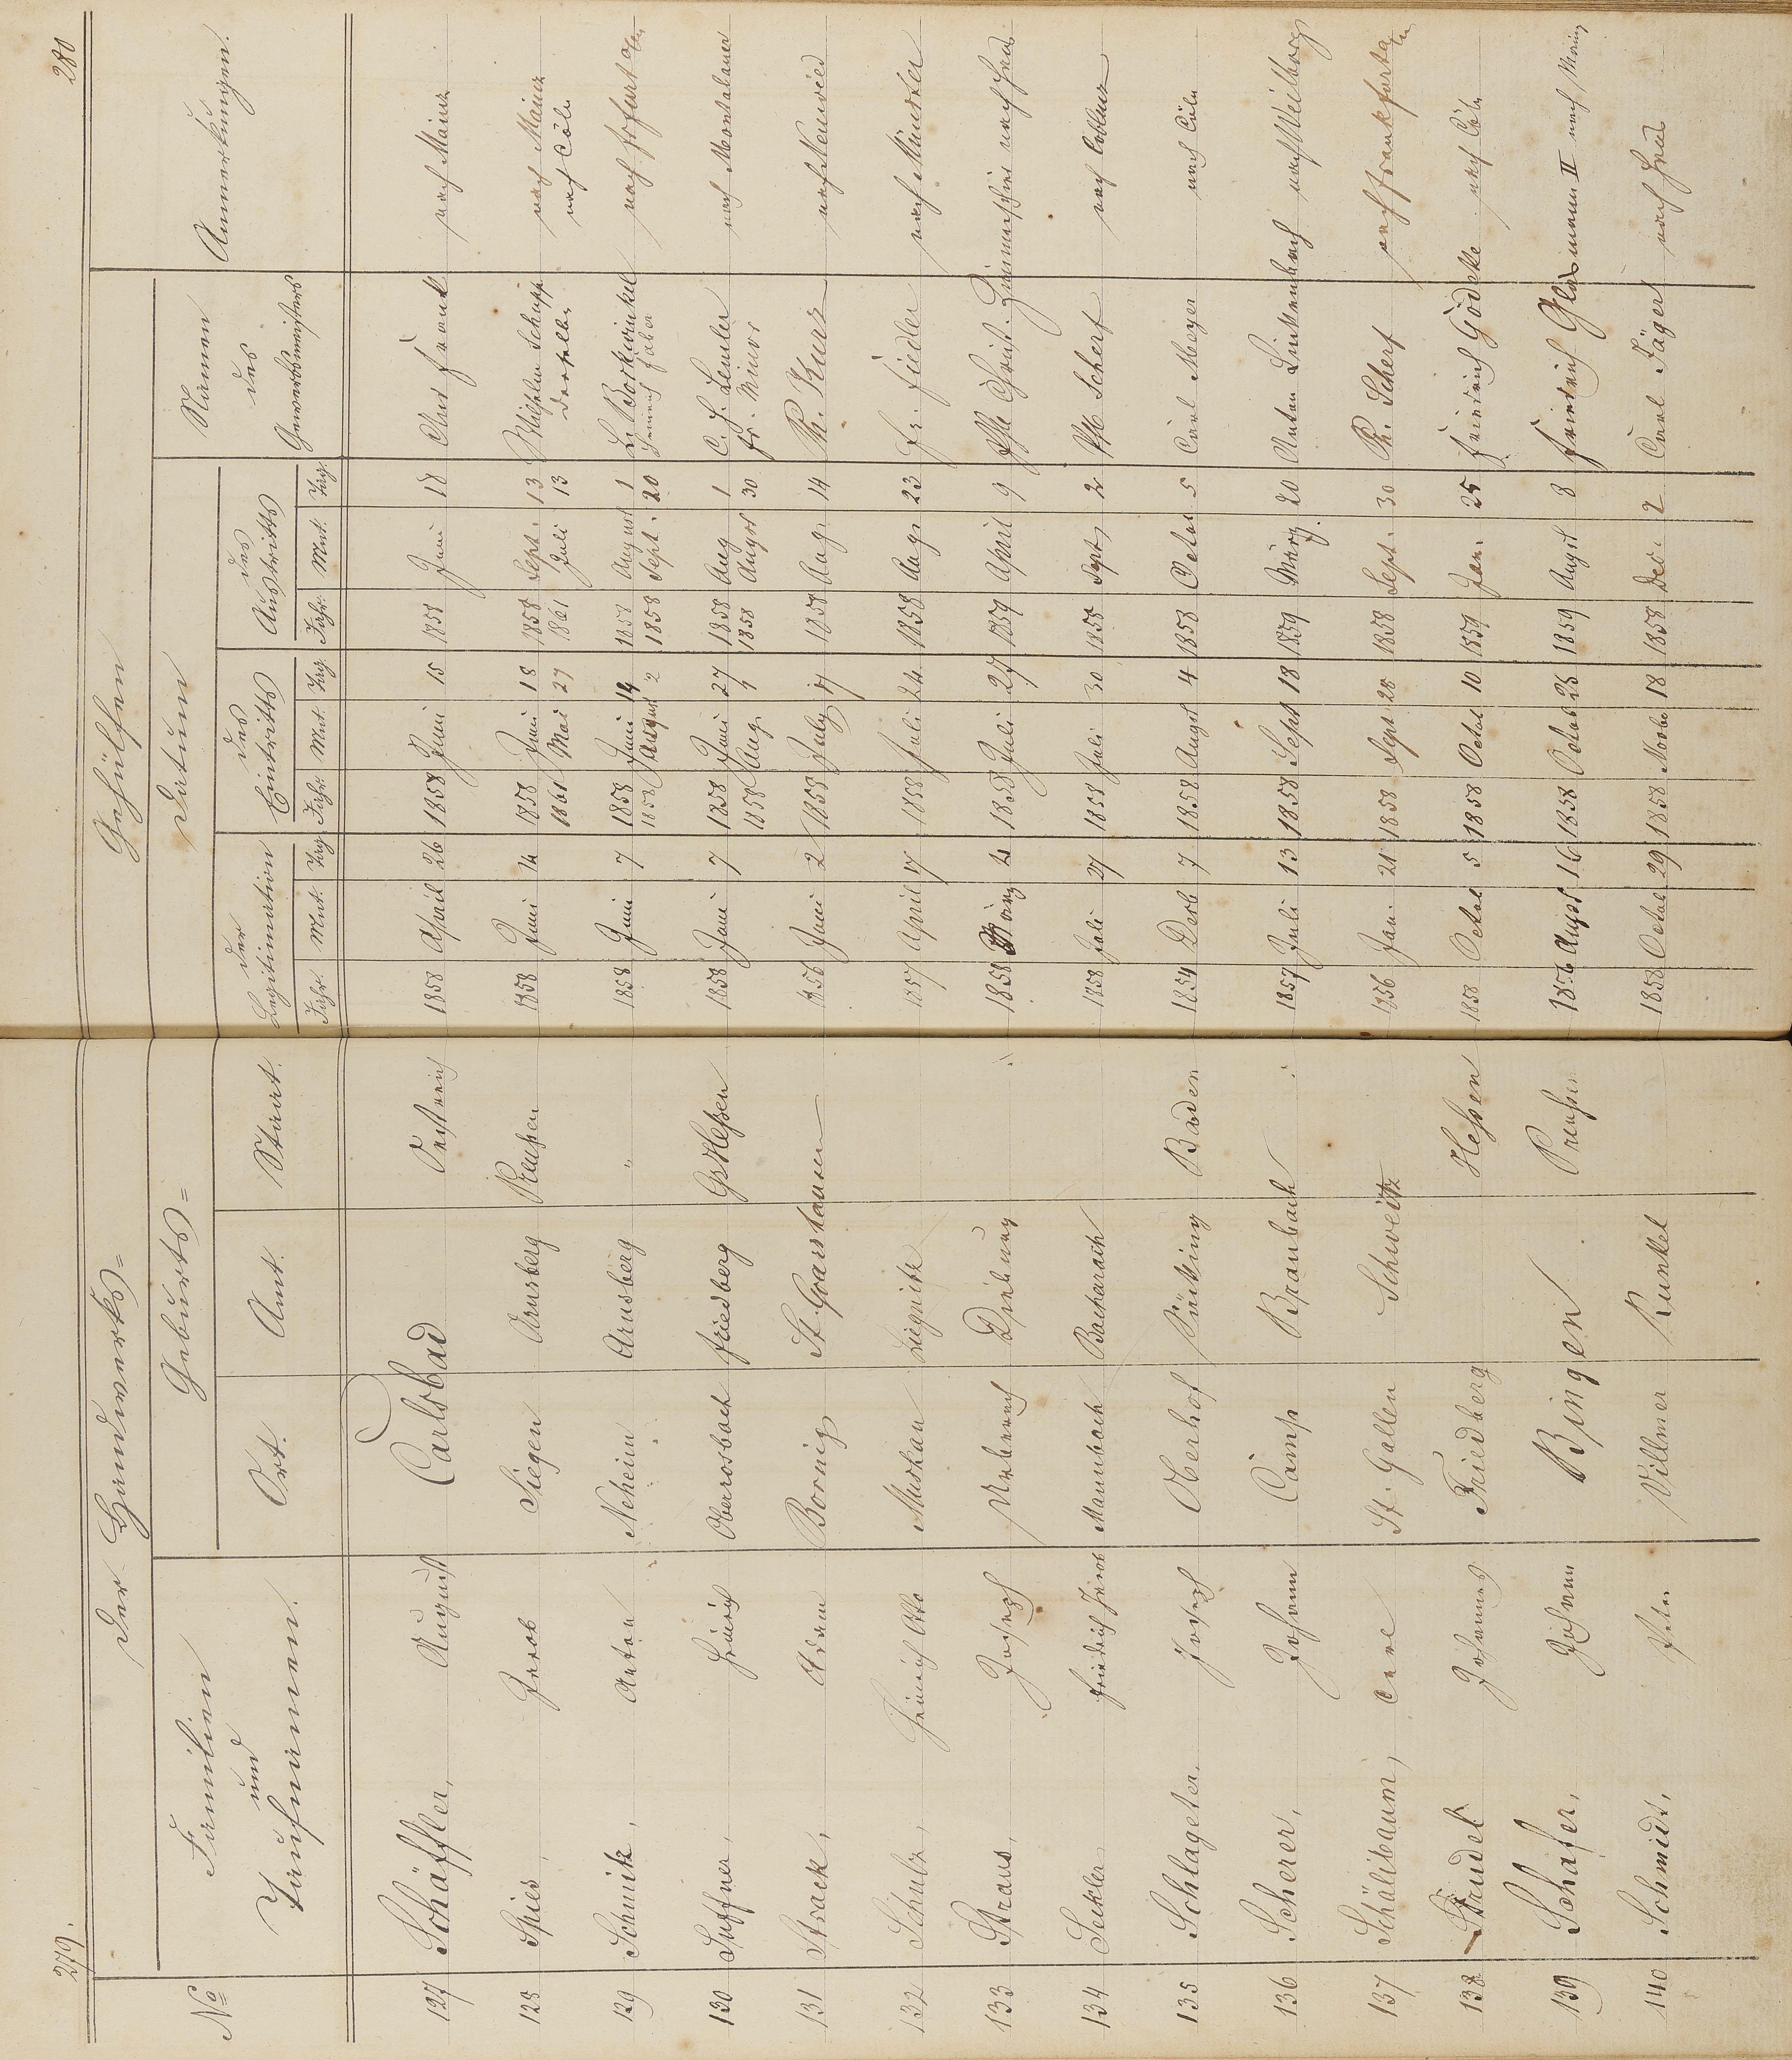 279.
280
Der Handwerks-
Gehülfen
No
Familien
und
Taufnamen.
Geburts-
Ort.
Amt.
Staat.
Datum
der
Legitimation
des
Eintritts
des
Austritts
Jahr. Mnt. Tag
Jahr. Mnt. Tag
Jahr. Mnt. Tag
Namen
des
Gewerbsmeisters
Anmerkungen.
127 Schäffler, August Carlsbad Oestreich 1858 April 26 1858 Juni 15 1858 Juni 18 Frank nach Mainz
128 Spies, Jacob Siegen Arnsberg Preußen 1858 Juni 14 1858 Juni 18 1858 Sept. 13 Wilhelm Schupp nach Mainz
1861 Mai 27 1861 Juli 13 derselbe nach Cöln
129 Schmitz, Anton Neheim Arnsberg " 1858 Juni 7 1858 Juni 14 1858 August 1 nach
1858 August 2 1858 Sept. 20 Heinrich Faber
130 Suffner, Heinrich Oberrosbach Friedberg GsHeßen 1858 Juni 7 1858 Juni 27 1858 Aug 1 C. H. nach Montabaur
1858 Aug. 1858 August 30 Fr. Minor
131 Strack, Adam Bornig St. Goarshausen 1856 Juni 2 1858 July 17 1858 Aug. 14 Ph. Kurz nach Neuwied
132 Schulz, Heinrich Otto Muskau Liegnitz 1857 April 17 1858 Juli 24 1858 Aug. 23 Fr. Fiedler nach Münster
133 Straus, Joseph Urberach Dieburg 1858 März 4 1858 Juli 27 1859 April 9 Christ. Zimmerschied nach
134 Seckler, Friedrich Jacob Mannbach Bacharach 1858 Juli 27 1858 Juli 30 1858 Sept. 2 Scherf nach Coblenz
135 Schlageter, Joseph Oberhof Säcking Baden 1854 Decb 7 1858 August 4 1858 Octob 5 Carl Meyer nach Cöln
136 Scherer, Johann Camp Braubach 1857 Juli 13 1858 Sept 18 1859 März 20 Anton Linkenbach nach Weilburg
137 Schälibaum, Carl St. Gallen Schweitz 1856 Jan. 21 1858 Sept 28 1858 Sept. 30 Ph. Scherf nach Frankfurt a/m
138 Strudel Johannes Friedberg Heßen 1858 Octob 5 1858 Octob 10 1859 Jan. 25 Friedrich Gödecke nach Cöln
139 Schäfer, Johann Bingen Preußen 1856 August 16 1858 Octob 25 1859 August 8 Friedrich Glasmann II nach Mainz
140 Schmidt, Peter Villmer Runkel 1858 Octob 29 1858 Novbr 18 1858 Dec. 2 Carl Jäger nach